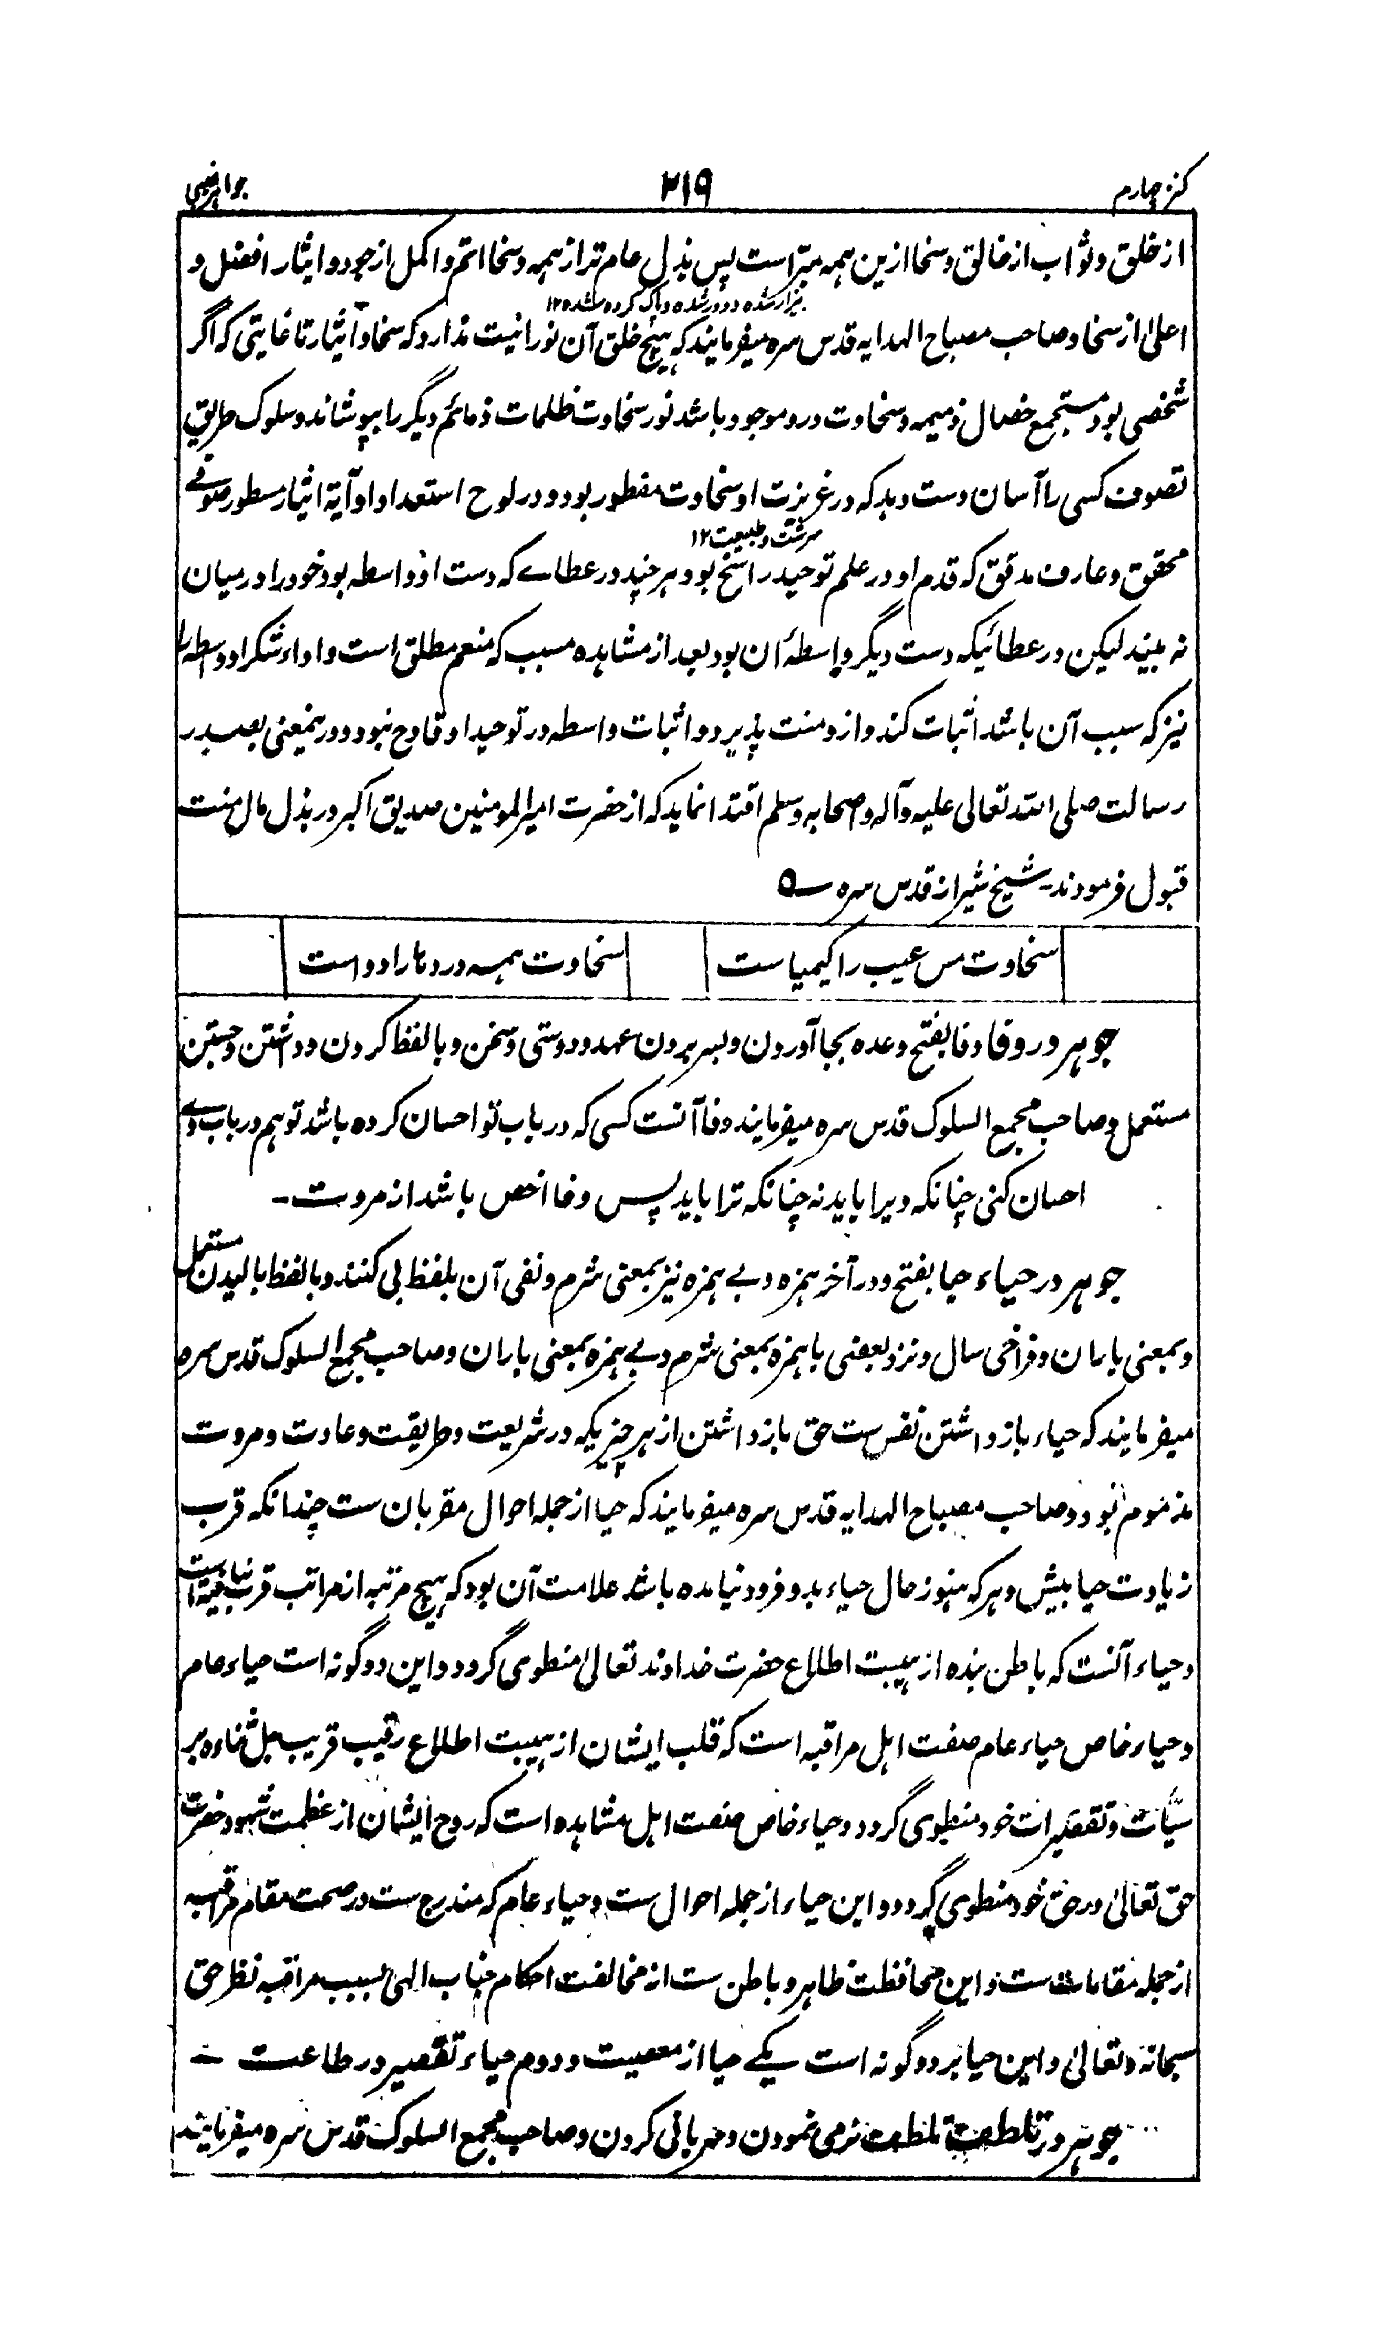 کنز چهارم ۲۱۹ جواهر غیبی
از خلق و ثواب از خالق و سخا ازین همه مبرّاست پس بذل عام تر از همه و سخا اتم و اکمل از جود و ایثار افضل و
بیزار شده و دور شده و پاک کرده شده ۱۲
اعلیٰ از سخا و صاحب مصباح الهدایه قدس سره میفرمایند که هیچ خلق آن نورانیت ندارد که سخا و ایثار تا غایتی که اگر
شخصی بود مستجمع خصال ذمیمه و سخاوت درو موجود باشد نور سخاوت ظلمات ذمائم دیگر را بپوشاند و سلوک طریق
تصوف کسی را آسان دست دهد که در غریزت او سخاوت مفطور بود و در لوح استعداد او آیة ایثار مسطور صوفی
سرشت و طبیعت ۱۲
محقق و عارف مدقق که قدم او در علم توحید راسخ بود هر چند در عطاے که دست او واسطه بود خود را در میان
نه بیند لیکن در عطائیکه دست دیگر واسطهٔ آن بود بعد از مشاهده مسبب که منعم مطلق است و اداء شکر او واسطه را
نیز که سبب آن باشد اثبات کند و ازو منت پذیرد و اثبات واسطه در توحید او قادح نبود و درینمعنی بصدر
رسالت صلی الله تعالی علیه و آله و اصحابه و سلم اقتدا نماید که از حضرت امیرالمومنین صدیق اکبر در بذل مال منت
قبول فرمودند - شیخ شیراز قدس سره ؎
سخاوت مس عیب را کیمیاست سخاوت همه دردها را دواست
جوهر در وفا وفا بفتح وعده بجا آوردن و بسر بردن عهد و دوستی و سخن و با لفظ کردن و داشتن و جستن
مستعمل و صاحب مجمع السلوک قدس سره میفرمایند وفا آنست کسی که در باب تو احسان کرده باشد تو هم در باب وے
احسان کنی چنانکه ویرا باید نه چنانکه ترا باید پس وفا اخص باشد از مروت -
جوهر در حیاء حیا بفتح و در آخر همزه و بے همزه نیز بمعنی شرم و نفی آن بلفظ بی کنند و با لفظ بالیدن مستعمل
و بمعنی باران و فراخی سال و نزد بعضی با همزه بمعنی شرم و بے همزه بمعنی باران و صاحب مجمع السلوک قدس سره
میفرمایند که حیاء باز داشتن نفس ست حق باز داشتن از هر چیزیکه در شریعت و طریقت و عادت و مروت
مذموم بود و صاحب مصباح الهدایه قدس سره میفرمایند که حیا از جمله احوال مقربان ست چندانکه قرب
زیادت حیا بیش و هر که هنوز حال حیاء بدو فرود نیامده باشد علامت آن بود که هیچ مرتبه از مراتب قرب نیافته است
و حیاء آنست که باطن بنده از هیبت اطلاع حضرت خداوند تعالیٰ منطوی گردد و این دو گونه است حیاء عام
و حیاء خاص حیاء عام صفت اهل مراقبه است که قلب ایشان از هیبت اطلاع رقیب قریب جل ثناءه بر
سیّآت و تقصیرات خود منطوی گردد و حیاء خاص صفت اهل مشاهده است که روح ایشان از عظمت شهود حضرت
حق تعالیٰ در حق خود منطوی گردد و این حیاء از جمله احوال ست و حیاء عام که مندرج ست در صحت مقام مراقبه
از جمله مقامات ست و این محافظت ظاهر و باطن ست از مخالفت احکام جناب الهی بسبب مراقبه نظر حق
سبحانه و تعالیٰ و این حیا بر دو گونه است یکے حیا از معصیت و دوم حیاء تقصیر در طاعت -
جوهر در تلطف تلطف نرمی نمودن و مهربانی کردن و صاحب مجمع السلوک قدس سره میفرمایند